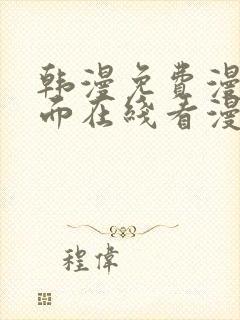 韩漫免费漫
而在线看漫
程偉